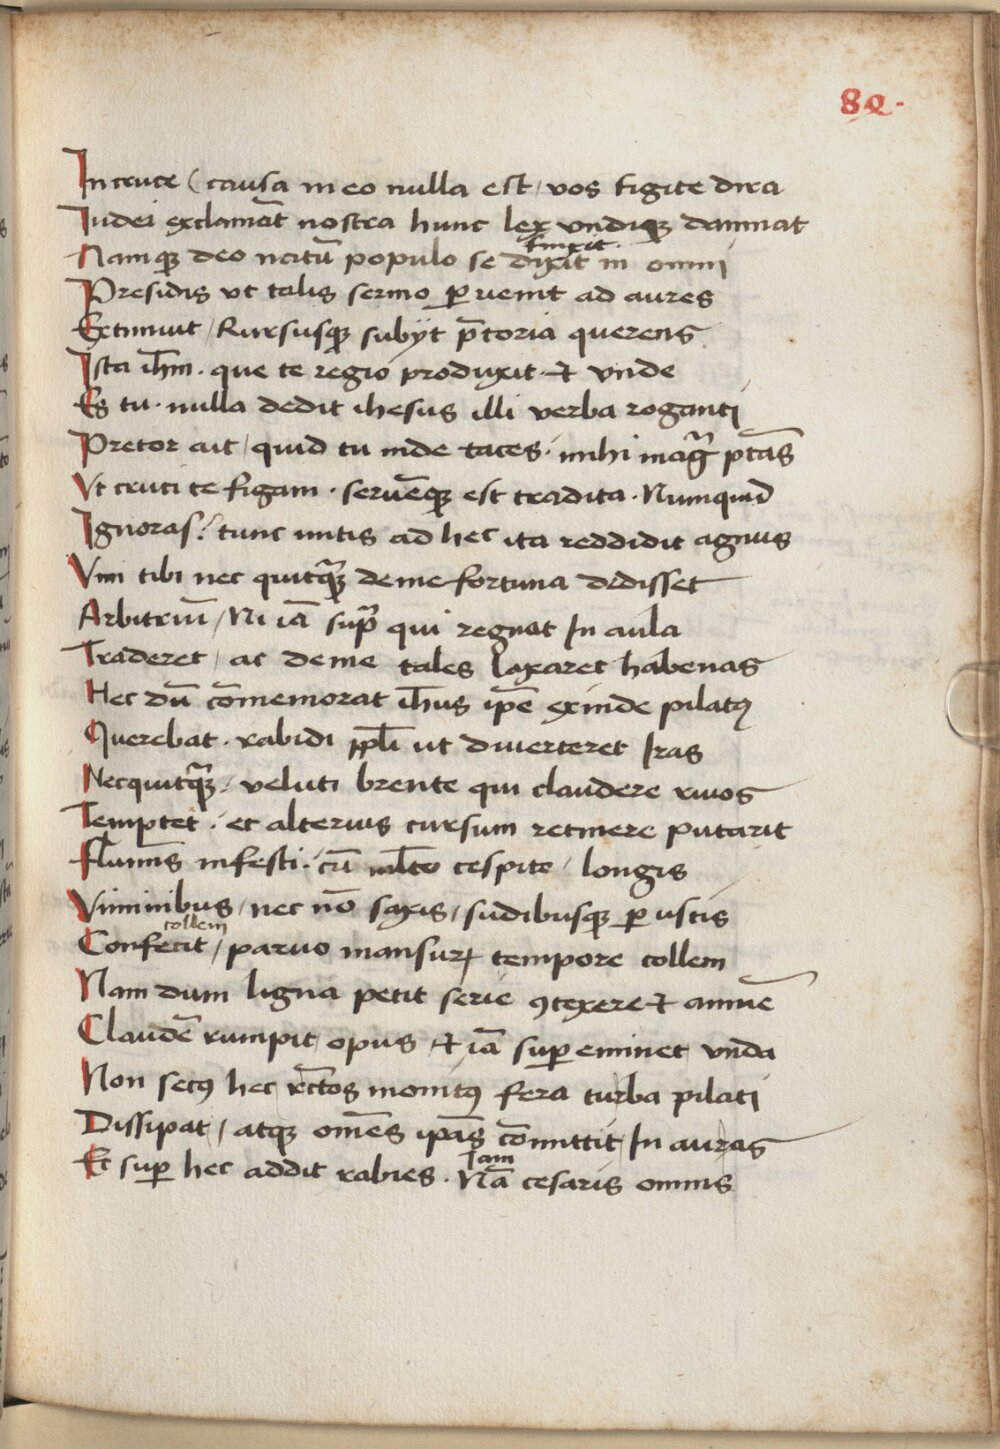 82.
In cruce ( causa in eo nulla est / vos figite dira
Iudei exclamãt nostra hunc lex vndiqꝫ damnat
finxit.
Namqꝫ deo ncitũ populo se dixit in omni
Presidis vt talis sermo ꝑuenit ad aures
Extimuit / Rursusqꝫ subijt p̃toria querens
Ista ih̃m . que te regio produxit . et vnde
Es tu . nulla dedit ihesus illi verba roganti
Pretor ait / quid tu inde taces . mihi mag̃ ptãs
Vt cruci te figam . seruẽqꝫ est tradita . Numquid
Ignoras? tunc mitis ad hec ita reddidit agnus
Vim tibi nec quitq̃ꝫ de me fortuna dedisset
Arbitriũ / Ni iã sup̃ qui regnat In aula
Traderet / ac de me tales laxaret habenas
Hec dũ cõmemorat ih̃us ip̃e exinde pilatꝰ
Querebat . rabidi ppl̃i ut diuerteret Iras
Necquitq̃ꝫ / veluti brente qui claudere riuos
Temptet . et alterius cursum retinere putarit
Flumĩs infesti . cũ ml̃to cespite / longis
Viminibus / nec nõ saxis / sudibusqꝫ ꝑustis
collem
Confecit / paruo mansurꝝ tempore collem
Nam dum ligna petit serie ꝯtexere et amnẽ
Claudẽ rumpit opus / et iã suꝑeminet vnda
Non secꝰ hec rc̃tos monitꝰ fera turba pilati
Dissipat / atqꝫ om̃es ip̃as cõmittit In auras
Iam
Et suꝑ hec addit rabies . Nã cesaris omnis